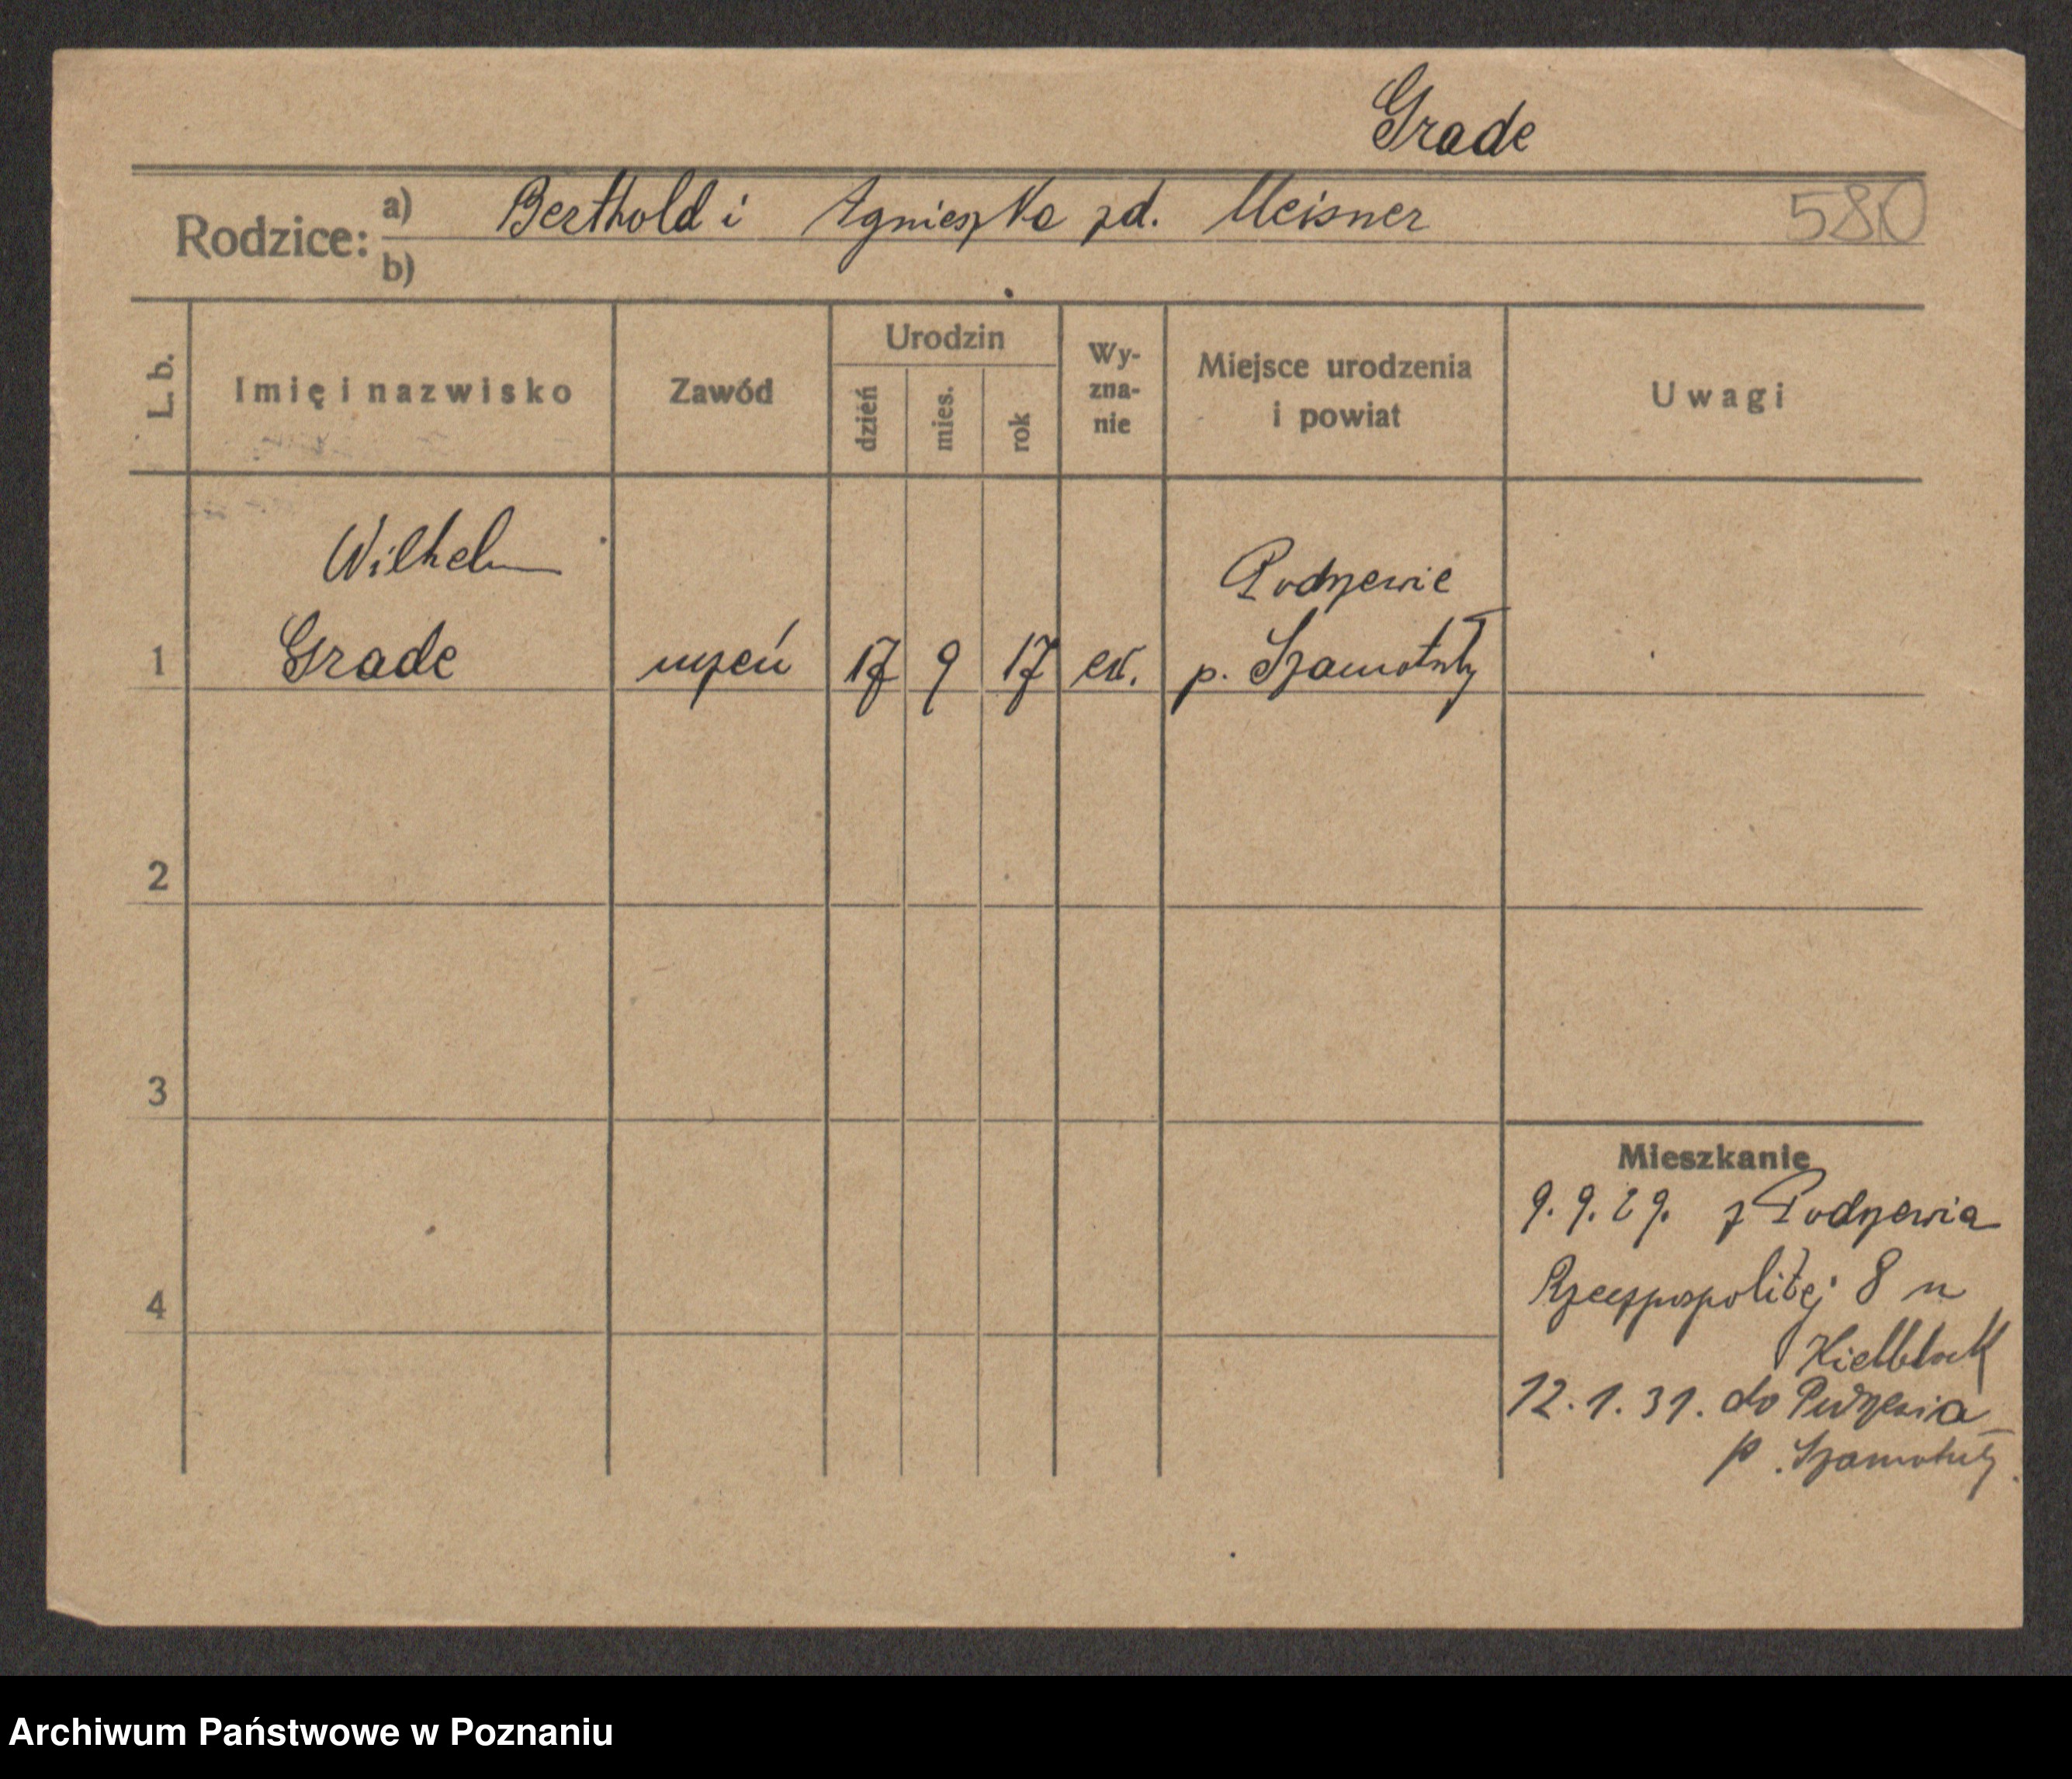 Grade
Rodzice: a) Berthold i Agnieszka zd. Meisner 580
b)
L. b. Imię i nazwisko Zawód Urodzin dzień mies. rok Wy-zna-nie Miejsce urodzenia i powiat Uwagi
Wilhelm Podrzewie
1 Grade uczeń 17 9 17 ew. p. Szamotuły
2
3
Mieszkanie
9.9.29. z Podrzewia
4 Rzeczpospolitej 8 u
12.1.31. do Podrzewia
p. Szamotuły
Archiwum Państwowe w Poznaniu